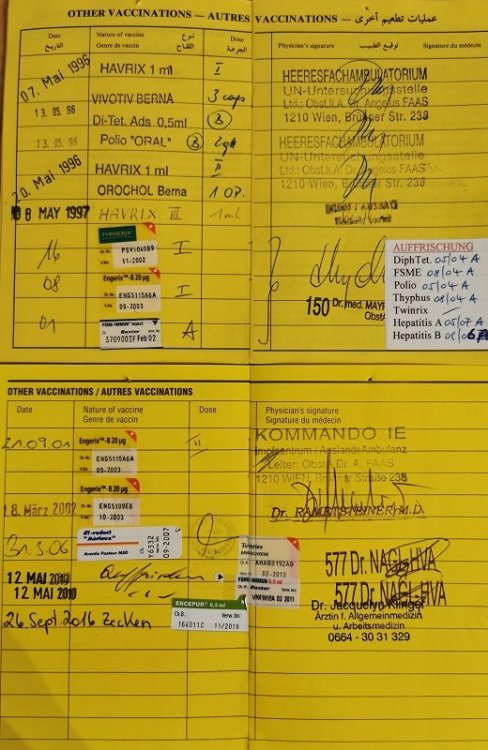 OTHER VACCINATIONS — AUTRES VACCINATIONS — عمليات تطعيم أخرى
Date
التاريخ
Nature of vaccine
Genre de vaccin
اللقاح
Dose
الجرعة
Physician's signature
توقيع الطبيب
Signature du médecin
07. Mai 1996
HAVRIX 1 ml
I
13. 05. 96
VIVOTIV BERNA
3 caps
Di-Tet. Ads. 0,5ml
B
13. 05. 96
Polio "ORAL"
B
20. Mai 1996
HAVRIX 1 ml
II
OROCHOL Berna
1 Do.
08 MAY 1997
HAVRIX III
1 ml
HEERESFACHAMBULATORIUM
UN-Untersuchungsstelle
Ltd.: ObstA Dr. Angelus FAAS
1210 Wien, Brünner Str. 238
HEERESFACHAMBULATORIUM
UN-Untersuchungsstelle
Ltd.: ObstA Dr. Angelus FAAS
1210 Wien, Brünner Str. 238
16
TYPHERIX
11-2002
I
08
Engerix™-B 20 µg
ENG5115A6A
09-2003
I
01
FSME-IMMUN Inject
Baxter
370900IF Feb 02
A
150 Dr. med.
ObstA
AUFFRISCHUNG
DiphTet. 05/04 A
FSME 08/04 A
Polio 05/04 A
Thyphus 08/04 A
Twinrix
Hepatitis A 05/07 A
Hepatitis B
OTHER VACCINATIONS / AUTRES VACCINATIONS
Date
Nature of vaccine
Genre de vaccin
Dose
Physician's signature
Signature du médecin
21.09.01
Engerix™-B 20 µg
ENG5115A6A
09-2003
II
KOMMANDO IE
Impfzentrum / AuslandsAmbulanz
Leiter: ObstA Dr. A. FAAS
1210 WIEN, Brünner Straße 238
Engerix™-B 20 µg
ENG5109E6
10-2003
18. März 2002
Dr. RAMETSTEINER, M.D.
31.3.06
dT-reduct
"Mérieux"
Aventis Pasteur MSD
Y6332
09-2007
Twinrix
ERWACHSENE
AHABB192AB
02-2012
577 Dr. NAGL-HVA
12 MAI 2010
Auffrischen
FSME-IMMUN 0,5 ml
Baxter
577 Dr. NAGL-HVA
12 MAI 2010
26. Sept. 2016 Zecken
ENCEPUR® 0,5 ml
Ch.B.:
Verw. bis:
164011C
11/2016
Dr. Jacquelyn Klinger
Ärztin f. Allgemeinmedizin
u. Arbeitsmedizin
0664 - 30 31 329